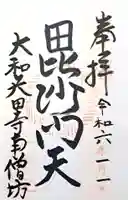 奉拝 令和六一
毘沙門天
大和矢田寺南僧坊